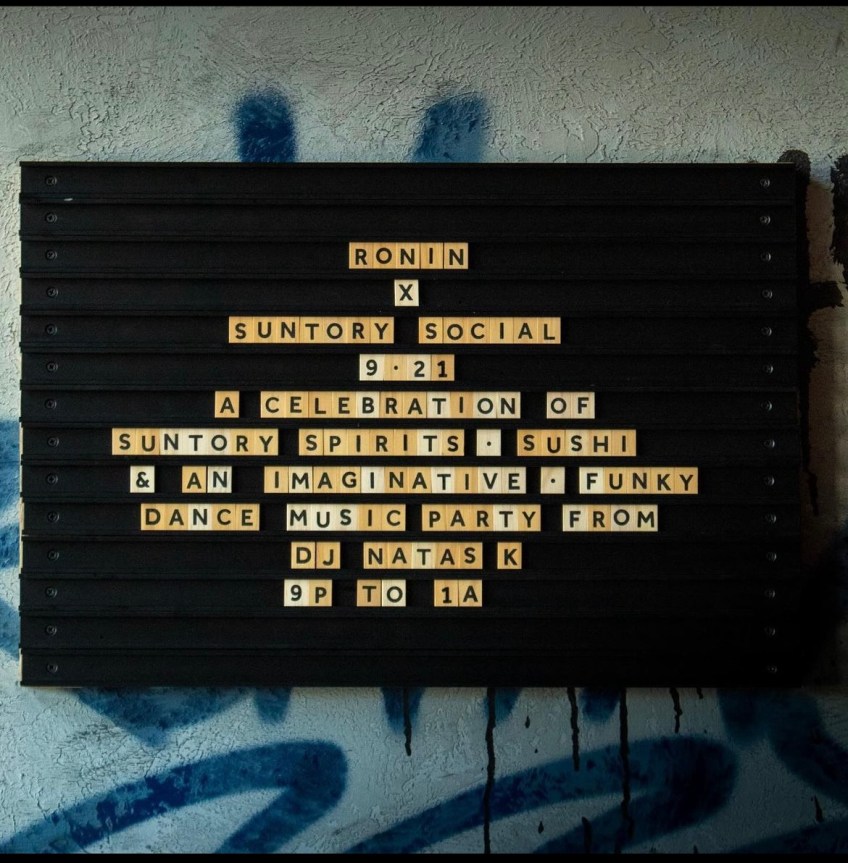 RONIN
X
SUNTORY SOCIAL
9·21
A CELEBRATION OF
SUNTORY SPIRITS · SUSHI
& AN IMAGINATIVE · FUNKY
DANCE MUSIC PARTY FROM
DJ NATAS K
9P TO 1A